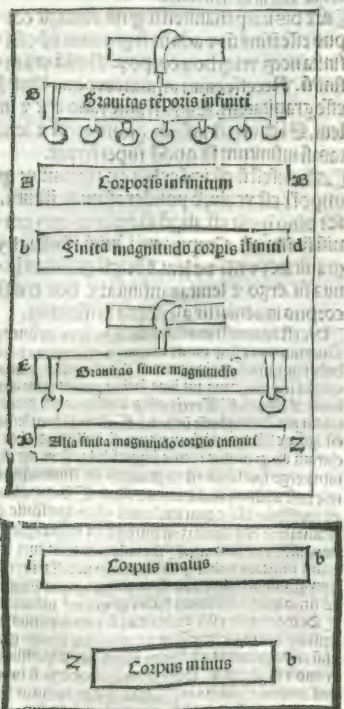 G Grauitas tēporis infiniti
A Corporis infinitum B
b Finita magnitudo corpis ifiniti d
E Grauitas finite magnitudis
B Alia finita magnitudo corpis infiniti Z
i Corpus maius b
Z Corpus minus b